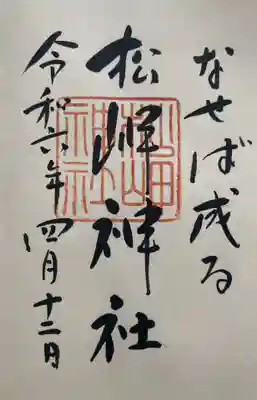 なせば成る
松岬神社
令和六年四月十二日